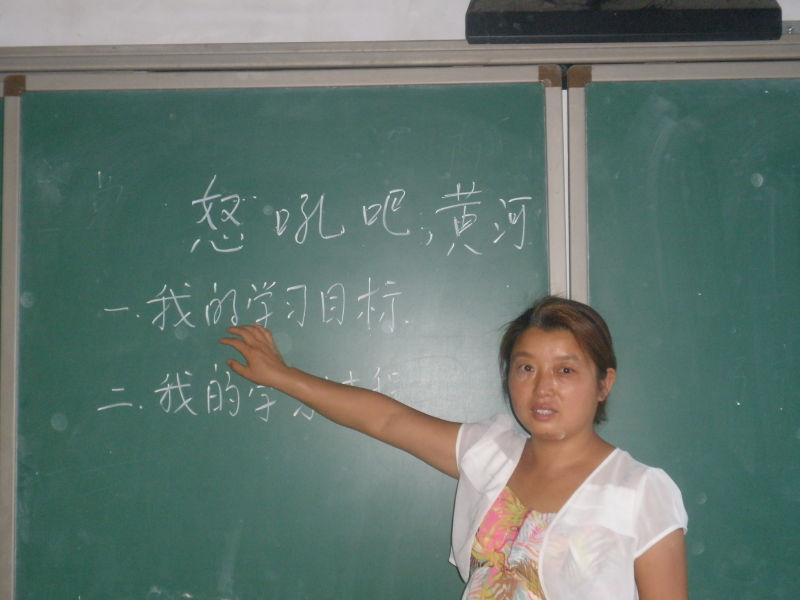 怒吼吧，黄河
一.我的学习目标.
二.我的学习过程